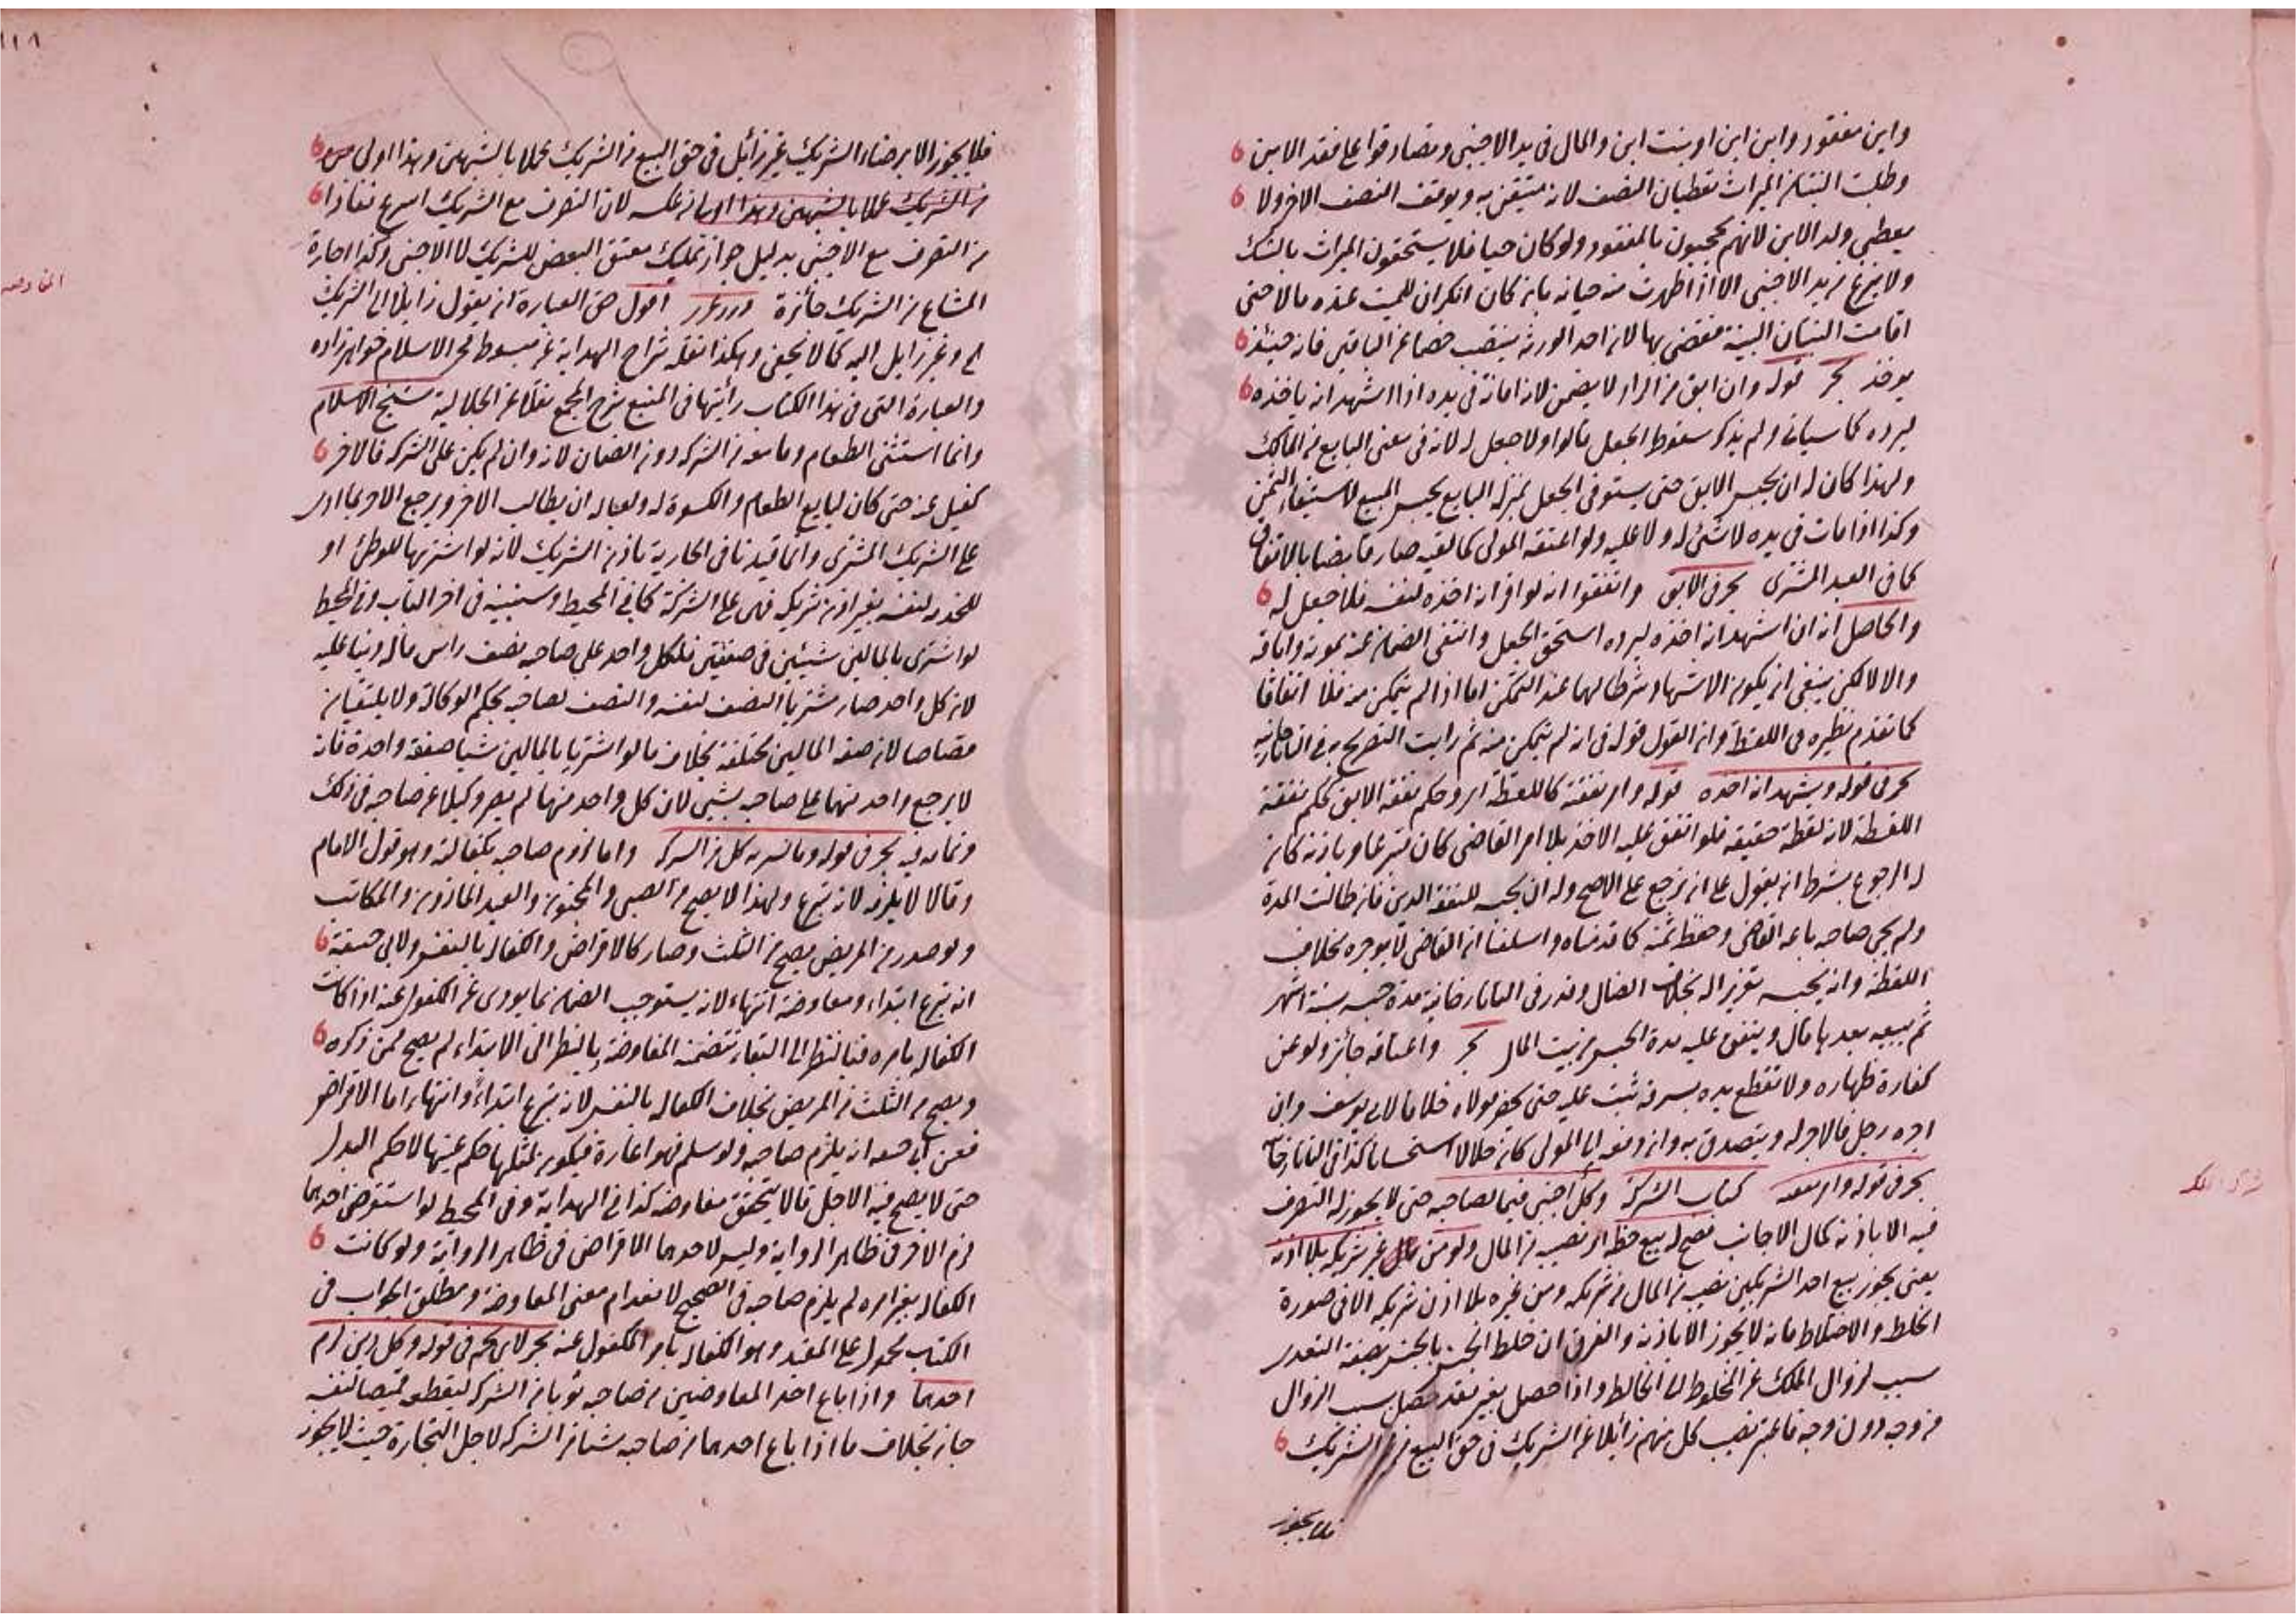 وابن مفقود وابن ابن او بنت ابن والمال فى يد الاجنبى وتصادقوا على فقد الابن
وطلبت البنتان الميراث تعطيان النصف لانه متيقن به ويوقف النصف الاخر ولا
يعطى ولد الابن لانهم يحجبون بالمفقود ولو كان حيا فلا يستحقون الميراث بالشك
ولا ينزع من يد الاجنبى الا اذا ظهرت منه خيانة بان كان انكر ان للميت عنده مالا حتى
اقامت البنتان البينة فقضى بها لان احد الورثة ينتصب خصما عن الباقين فانه حينئذ
يوخذ بحر قوله وان ابق من الراد لا يضمن لانه امانة فى يده اذا اشهد انه ياخذه
ليرده كما سياتى ولم يذكر سقوط الجعل قالوا ولا جعل له لانه فى معنى البايع من المالك
ولهذا كان له ان يحبس الابق حتى يستوفى الجعل بمنزلة البايع يحبس المبيع لاستيفاء الثمن
وكذا اذا مات فى يده لا شئ له ولا عليه ولو اعتقه المولى كما لقيه صار قابضا بالاعتاق
كما فى العبد المشترى بحر فى الابق واتفقوا انه لو اقر انه اخذه لنفسه فلا جعل له
والحاصل انه ان اشهد انه اخذه ليرده استحق الجعل وانتفى الضمان عنه بموته واباقه
والا لا لكن ينبغى ان يكون الاشهاد شرطا لهما عند التمكن اما اذا لم يتمكن منه فلا اتفاقا
كما تقدم نظيره فى اللقطة وان القول قوله فى انه لم يتمكن منه ثم رايت التصريح به فى التاتارخانية
بحر فى قوله ويشهد انه اخذه قوله وامر نفقته كاللقطة اى وحكم نفقة الابق كحكم نفقة
اللقطة لانه لقطة حقيقة فلو انفق عليه الاخذ بلا امر القاضى كان متبرعا وباذنه كان
له الرجوع بشرط ان يقول على ان يرجع على الاصح وله ان يحبسه للنفقة الدين فان طالت المدة
ولم يجئ صاحبه باعه القاضى وحفظ ثمنه كما قدمناه واسلفنا ان القاضى لا يوجره بخلاف
اللقطة وانه يحبسه تعزيرا له بخلاف الضال وقدر فى التاتارخانية مدة حبسه بستة اشهر
ثم يبيعه بعدها قال وينفق عليه مدة الحبس من بيت المال بحر واعتاقه جائز ولو عن
كفارة ظهاره ولا تقطع يده بسرقة ثبتت عليه حتى يحضر مولاه خلافا لابى يوسف وان
اجره رجل فالاجر له ويتصدق به وان دفعه الى المولى كان حلالا استحسانا كذا فى التاتارخانية
بحر فى قوله وامر نفقته كتاب الشركة وكل اجنبى فيما لصاحبه حتى لا يجوز له التصرف
فيه الا باذنه كمال الاجانب فصح له بيع حظه اى نصيبه من المال ولو من غير شريكه بلا اذنه
يعنى يجوز بيع احد الشريكين نصيبه من المال من شريكه ومن غيره بلا اذن شريكه الا فى صورة
الخلط والاختلاط فانه لا يجوز الا باذنه والفرق ان خلط الجنس بالجنس بصفة التعدى
سبب لزوال الملك عن المخلوط الى الخالط واذا حصل بغير تعد حصل سبب الزوال
من وجه دون وجه فاعتبر نصيب كل منهم زائلا عن الشريك فى حق البيع من الشريك
فلا يجوز
شركة الملك
١١٨
١١٩
فلا يجوز الا برضاء الشريك غير زائل فى حق البيع من الشريك عملا بالشبهين وهذا اولى من
من الشريك عملا بالشبهين وهذا اولى من عكسه لان التصرف مع الشريك اسرع نفاذا
من التصرف مع الاجنبى بدليل جواز تمليك معتق البعض للشريك لا الاجنبى وكذا اجارة
المشاع من الشريك جائزة درر غرر اقول حق العبارة ان يقول زايلا الى الشريك
وغير زايل اليه كما لا يخفى وهكذا نقله شراح الهداية عن مبسوط شيخ الاسلام خواهر زاده
والعبارة التى فى هذا الكتاب رأيتها فى المنبع شرح المجمع نقلا عن الجلالية شيخ الاسلام
وانما استثنى الطعام وما معه من الشركة دون الضمان لانه وان لم يكن على الشركة فالاخر
كفيل عنه حتى كان لبايع الطعام والكسوة له ولعياله ان يطالب الاخر ويرجع الاخر بما ادى
على الشريك المشترى وانما قيدنا فى الجارية باذن الشريك لانه لو اشتريها للوطئ او
للخدمة لنفسه بغير اذن شريكه فهى على الشركة كما فى المحيط وسنبينه فى اخر الباب وفى المحيط
لو اشترى بالمالين شيئين فى صفقتين فلكل واحد على صاحبه نصف راس ماله دينا عليه
لان كل واحد صار مشتريا النصف لنفسه والنصف لصاحبه بحكم الوكالة ولا يلتقيان
قصاصا لان صفة المالين مختلفة بخلاف ما لو اشتريا بالمالين شيا صفقة واحدة فانه
لا يرجع واحد منهما على صاحبه بشئ لان كل واحد منهما لم يصر وكيلا عن صاحبه فى ذلك
وتمامه فيه بحر فى قوله وما يشريه كل من الشركة واما لزوم صاحبه بكفالته وهو قول الامام
وقالا لا يلزمه لانه تبرع ولهذا لا يصح من الصبى والمجنون والعبد الماذون والمكاتب
ولو صدر من المريض يصح من الثلث وصار كالاقراض والكفالة بالنفس ولابى حنيفة
انه تبرع ابتداء ومعاوضة انتهاء لانه يستوجب الضمان بما يودى عن المكفول عنه اذا كانت
الكفالة بامره فبالنظر الى البقاء تتضمنه المفاوضة وبالنظر الى الابتداء لم يصح ممن ذكره
ويصح من الثلث من المريض بخلاف الكفالة بالنفس لانه تبرع ابتداء وانتهاء اما الاقراض
فعن ابى حنيفة انه يلزم صاحبه ولو سلم فهو اعارة فيكون لمثلها حكم عينها لا حكم البدل
حتى لا يصح فيه الاجل فلا يتحقق معاوضة كذا فى الهداية وفى المحيط لو استقرض احدهما
لزم الاخر فى ظاهر الرواية وليس لاحدهما الاقراض فى ظاهر الرواية ولو كانت
الكفالة بغير امره لم يلزم صاحبه فى الصحيح لانعدام معنى المعاوضة ومطلق الجواب فى
الكتاب محمول على المقيد وهو الكفالة بامر المكفول عنه بحر فى قوله وكل دين لزم
احدهما واذا باع احد المفاوضين من صاحبه ثوبا من الشركة ليقطعه قميصا لنفسه
جاز بخلاف ما اذا باع احدهما من صاحبه شيئا من الشركة لاجل التجارة حيث لا يجوز
المفاوضة